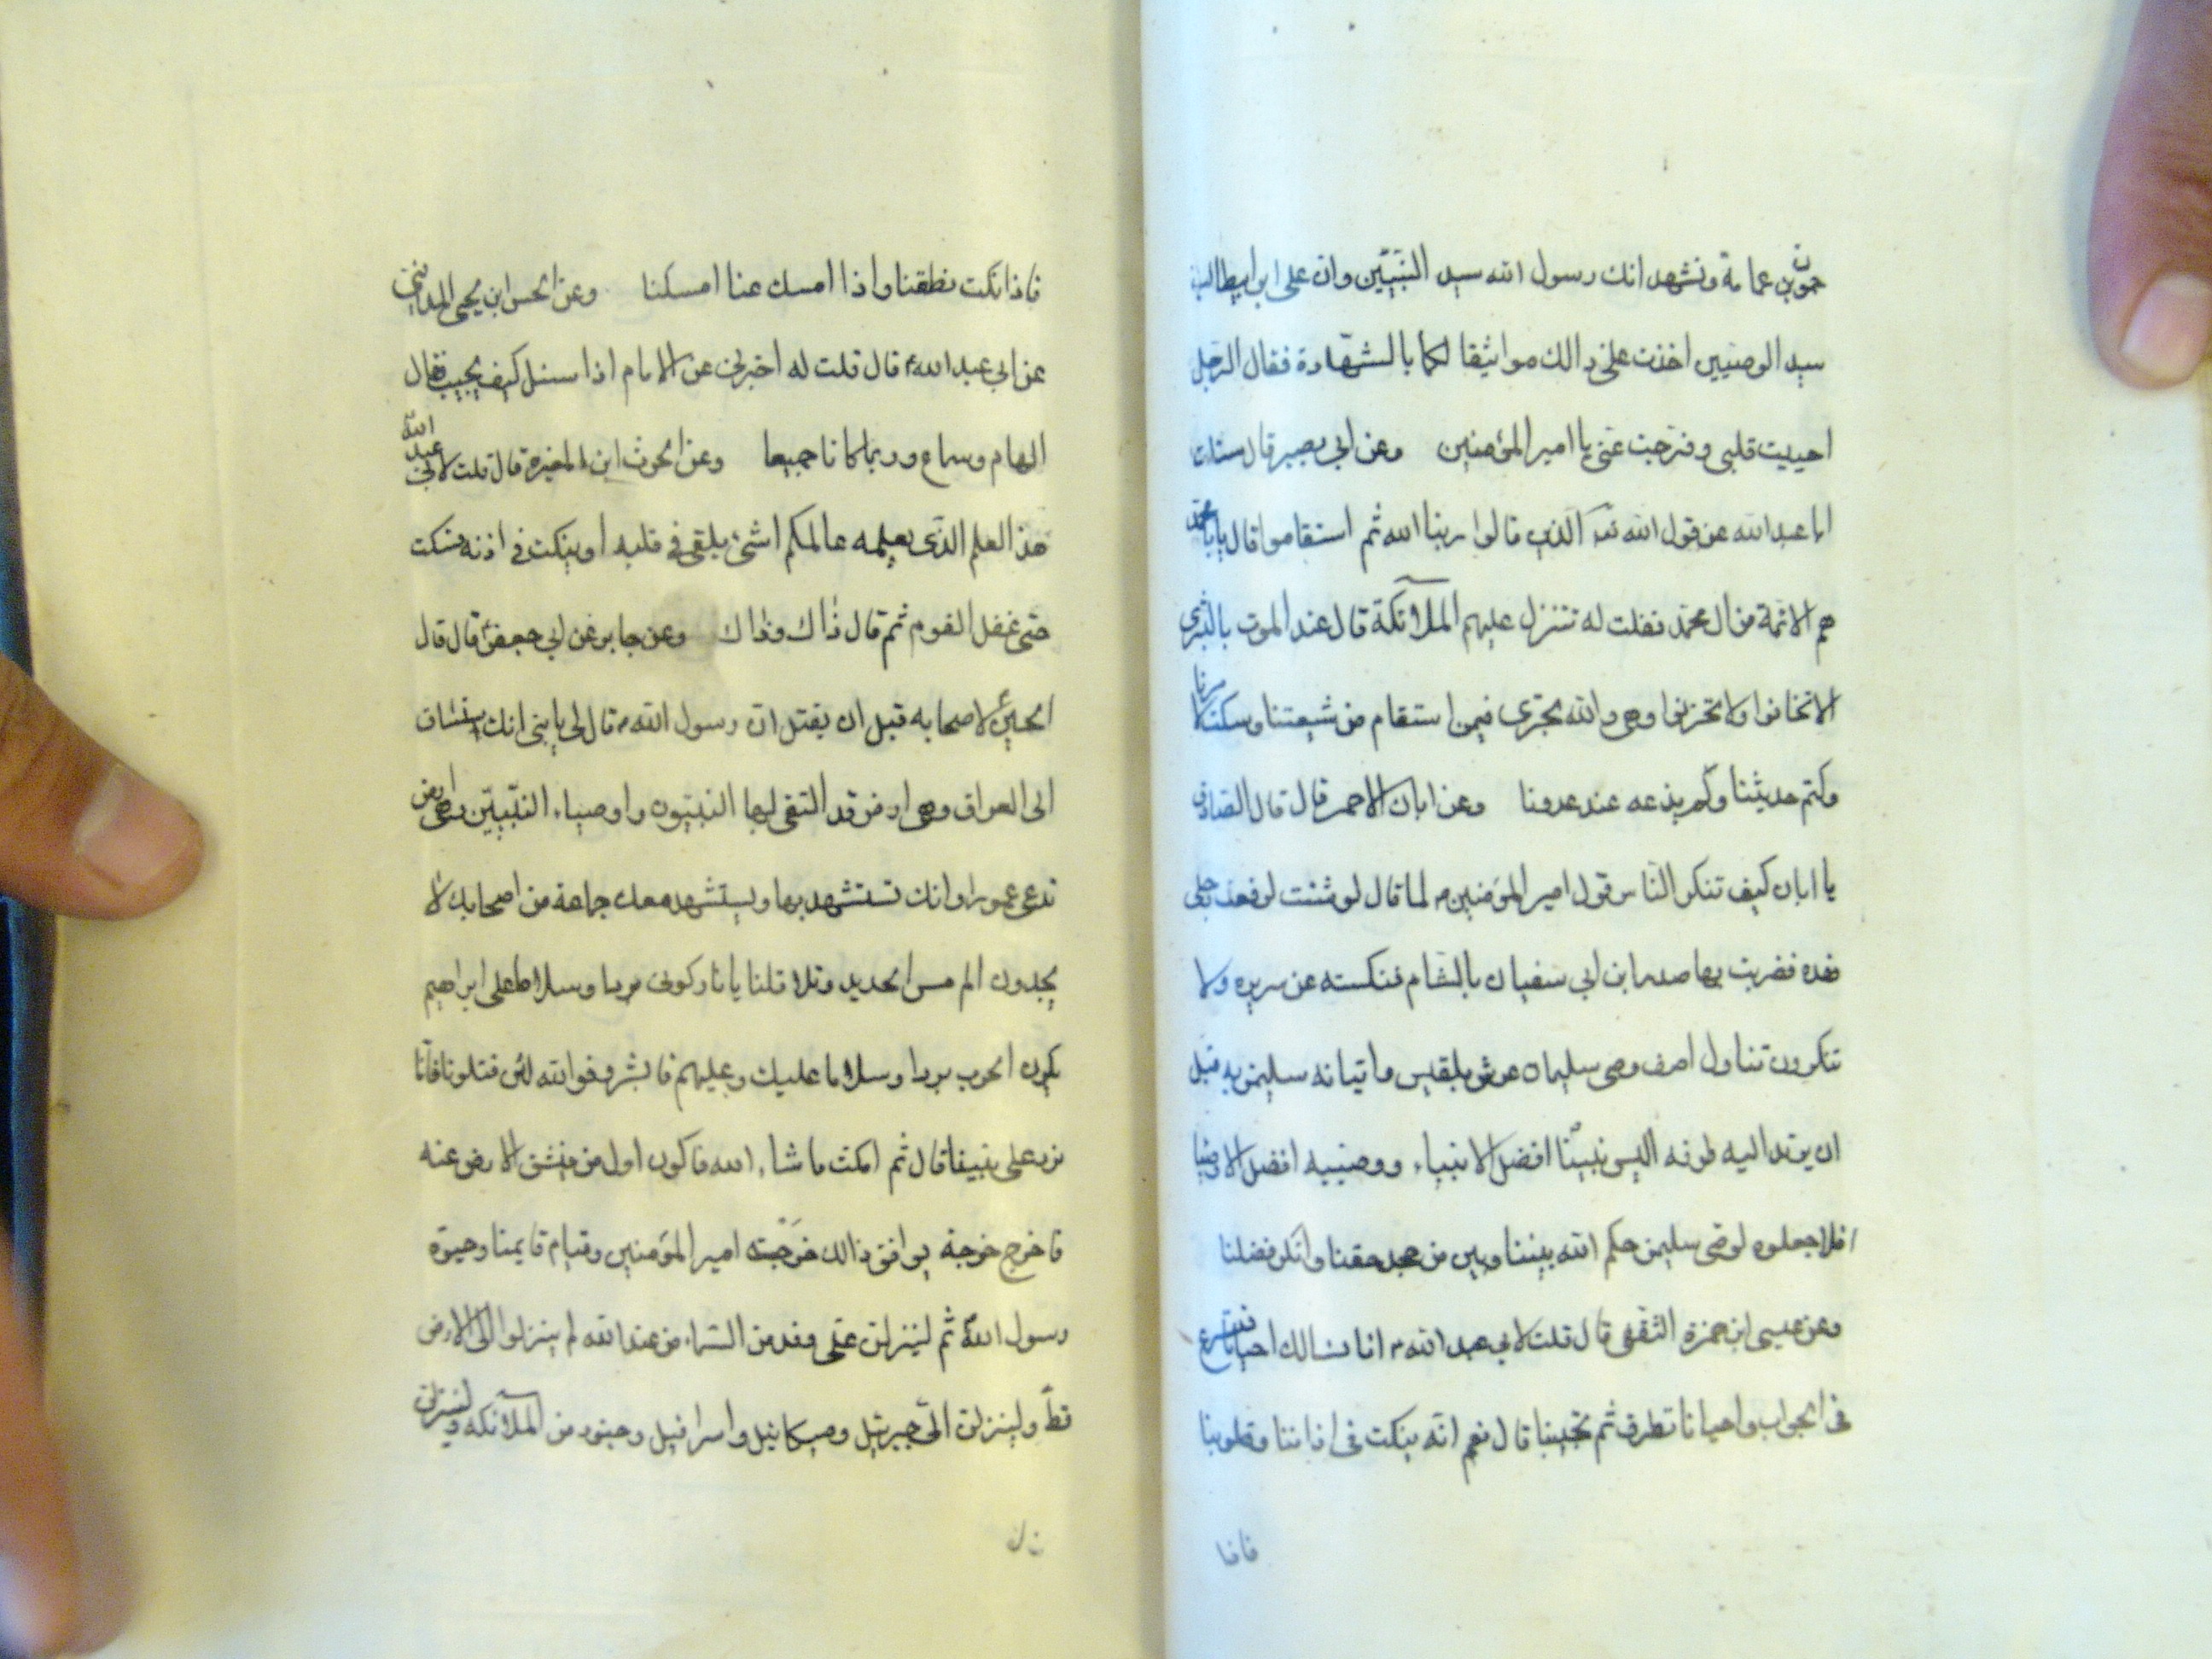 جوين بن عمامة ونشهد انك رسول الله سيد النبيّين وان على ابن ابيطالب
سيد الوصيين اخذت على ذالك مواثيقا لكما بالشهادة فقال الرجل
احييت قلبى وفرجت عنى يا امير المؤمنين وعن ابي بصير قال سئلت
ابا عبد الله عن قول الله الذين قالوا ربنا الله ثم استقاموا قال يا با محمد
هم الائمة من ال محمد فقلت له تتنزل عليهم الملآئكة قال عند الموت بالبشرى
الا تخافوا ولا تحزنوا وهى والله تجرى فيمن استقام من شيعتنا وسكت لامرنا
وكتم حديثنا ولم يذعه عند عدونا وعن ابان الاحمر قال قال الصادق
يا ابان كيف تنكر الناس قول امير المؤمنين لما قال لو شئت لرفعت رجلى
هذه فضربت بها صدر ابن ابي سفيان بالشام فنكسته عن سريره ولا
تنكرون تناول اصف وصى سليمان عرش بلقيس واتيانه سليمن به قبل
ان يرتد اليه طرفه اليس نبيّنا افضل الانبياء ووصييه افضل الاوصيا
افلا جعلوه لوصى سليمن حكم الله بيننا وبين من جحد حقنا وانكر فضلنا
وعن عيسى ابن حمزة الثقفى قال قلت لابي عبد الله انا نسالك احيانا فتسرع
فى الجواب واحيانا تطرق ثم تجيبنا قال نعم انه ينكت فى اذاننا وقلوبنا
فاذا
فاذا نكت نطقنا واذا امسك عنا امسكنا وعن الحسن ابن يحيى المدائنى
عن ابي عبد الله قال قلت له اخبرنى عن الامام اذا سئل كيف يجيب فقال
الهام وسماع وربما كانا جميعا وعن الحرث ابن المغيرة قال قلت لابى عبد الله
هذا العلم الذى يعلمه عالمكم اشئ يلقى فى قلبه او ينكت فى اذنه فسكت
حتى غفل القوم ثم قال ذاك وذاك وعن جابر عن ابي جعفر قال قال
الحسين لاصحابه قبل ان يقتل ان رسول الله قال لى يا بنى انك ستساق
الى العراق وهى ارض قد التقى بها النبيّون واوصياء النبّيين وهى ارض
تدعى عمورا وانك تستشهد بها ويستشهد معك جماعة من اصحابك لا
يجدون الم مس الحديد وتلا قلنا يا نار كونى بردا وسلاما على ابراهيم
يكون الحرب بردا وسلاما عليك وعليهم فابشروا فوالله لئن قتلونا فانّا
نرد على نبينا قال ثم امكث ما شاء الله فاكون اول من ينشق الارض عنه
فاخرج خرجة يوافق ذالك خرجته امير المؤمنين وقيام قايمنا وحيوة
رسول الله ثم لينزلن على وفد من السماء من عند الله لم ينزلوا الى الارض
قطّ ولينزلن الىّ جبرئيل وميكائيل واسرافيل وجنود من الملآئكه ولينزلن